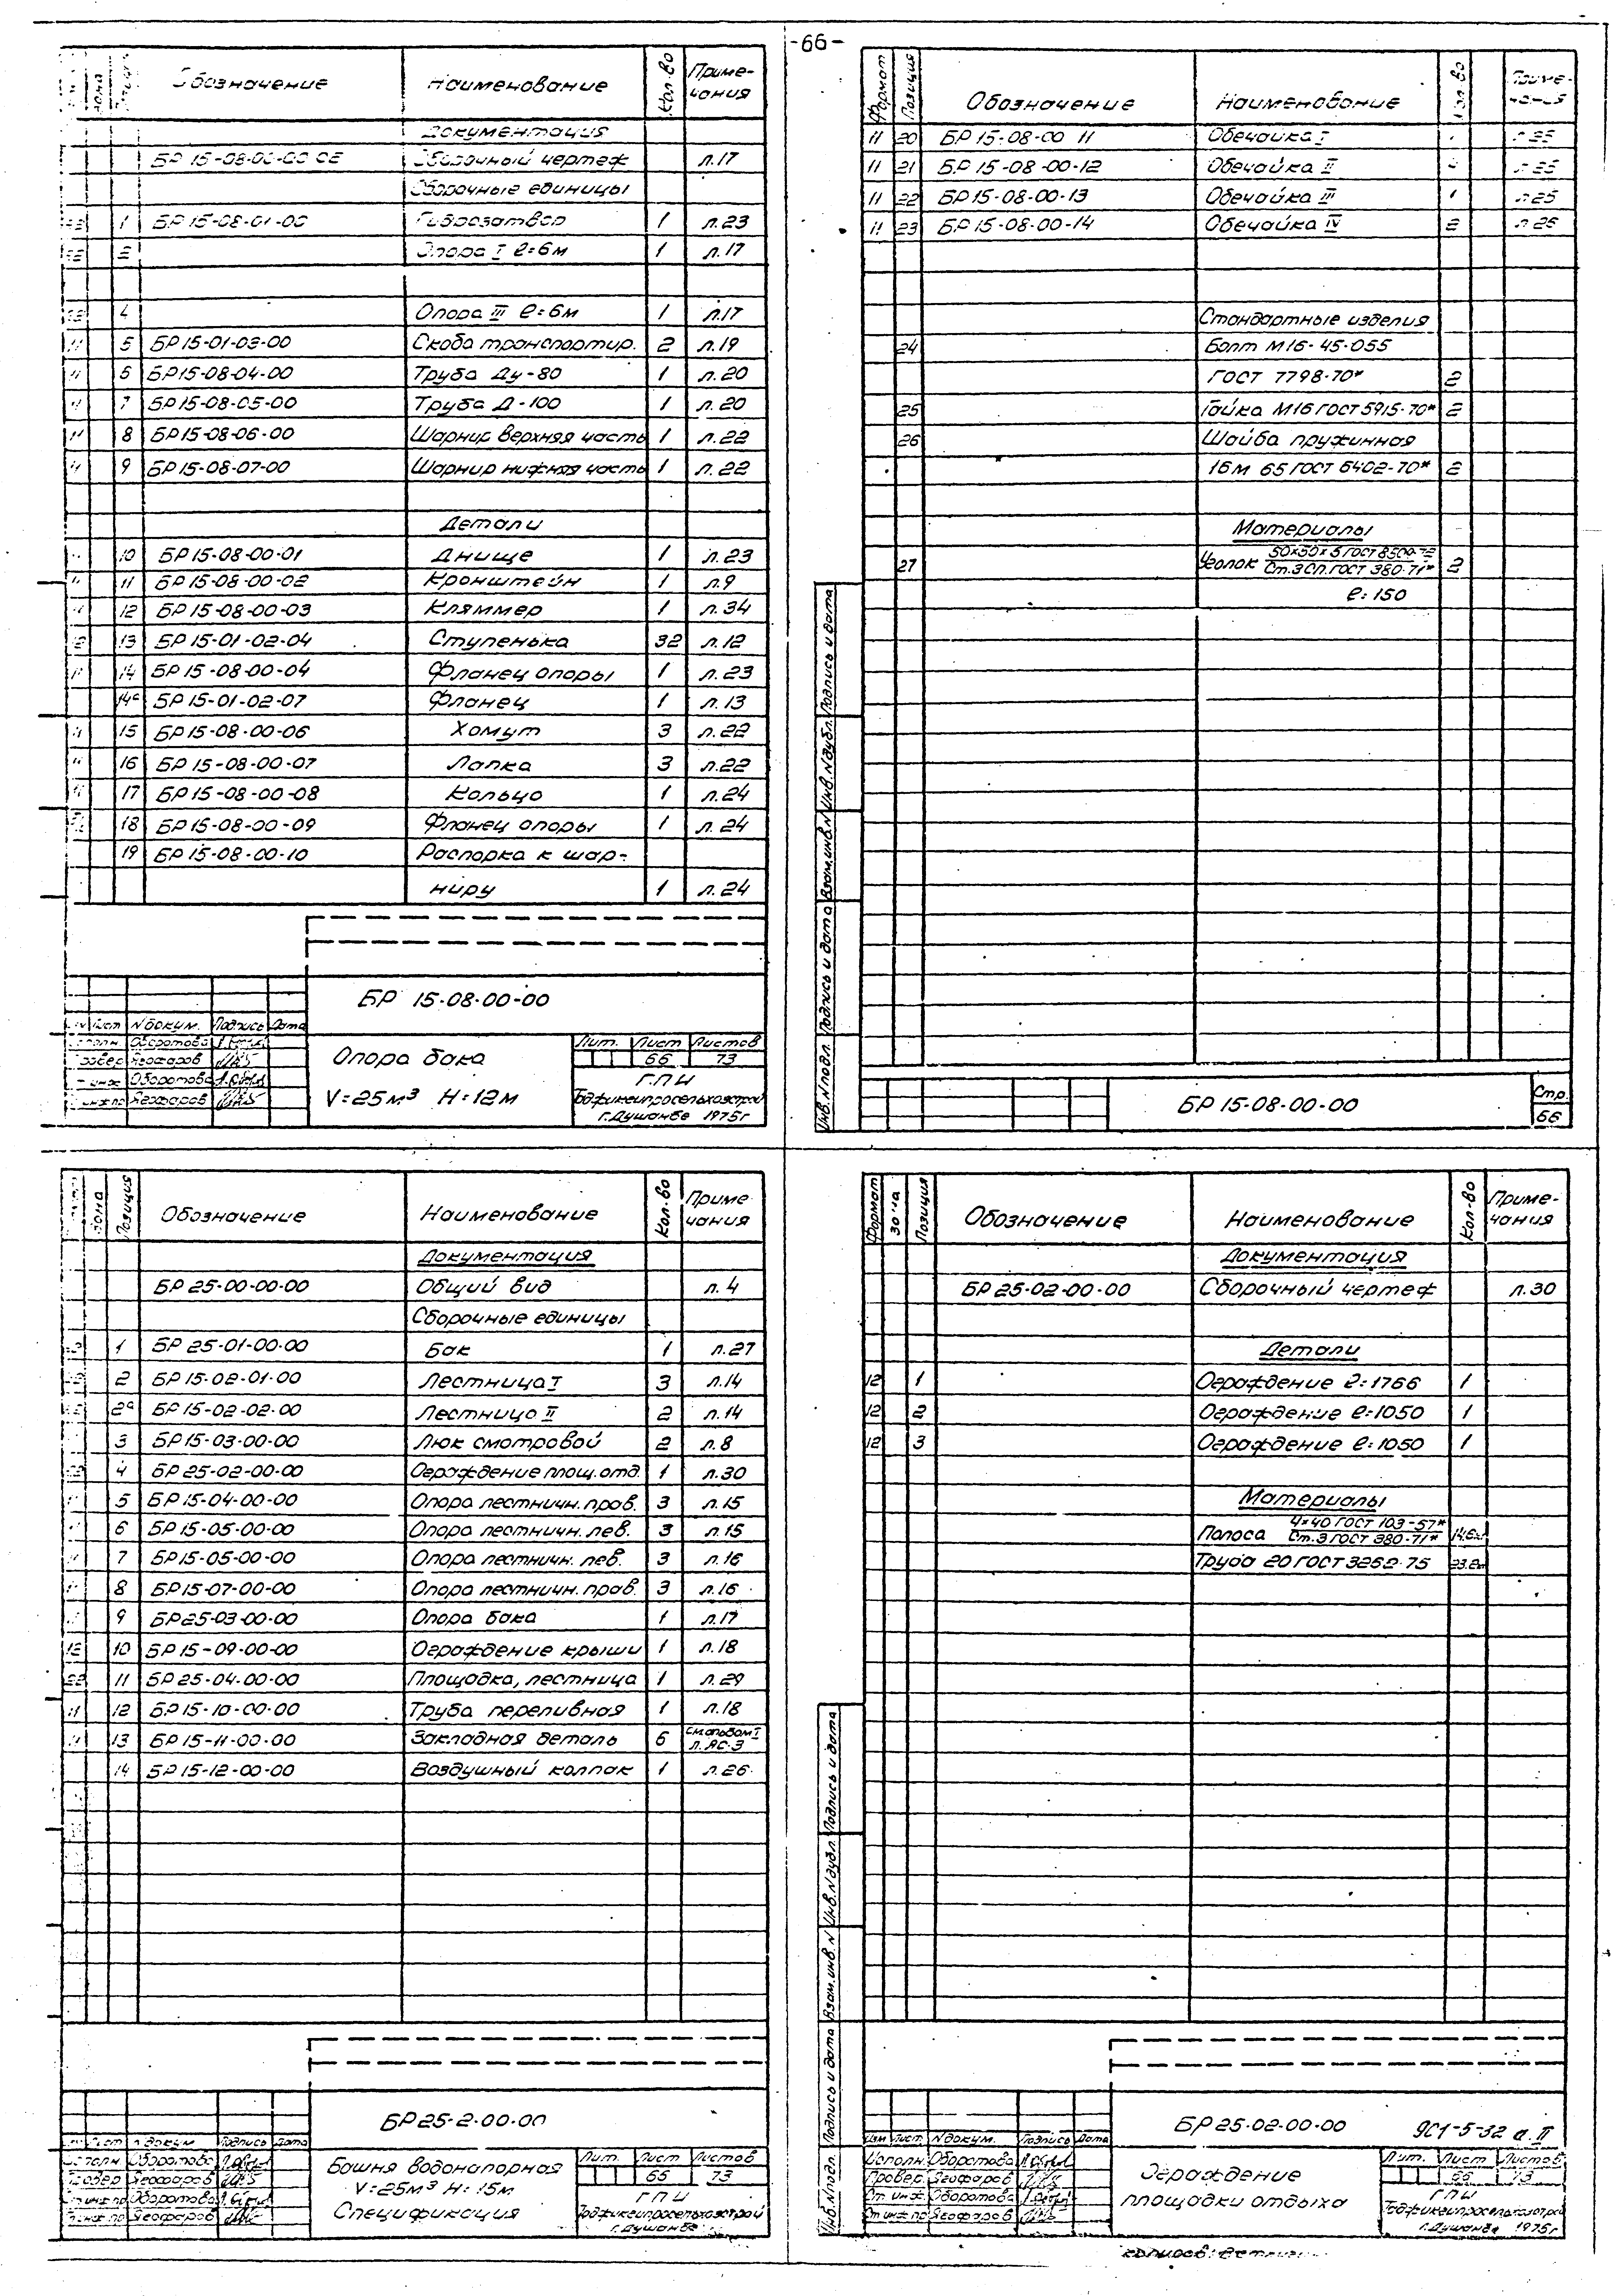 -66-
Обозначение Наименование Кол-во Приме-
чания
Документация
БР 15-08-00-00 СБ Сборочный чертеж л.17
Сборочные единицы
1 БР 15-08-01-00 Гидрозатвор 1 л.23
2 Опора I ℓ=6м 1 л.17
4 Опора III ℓ=6м 1 л.17
11 5 БР 15-01-03-00 Скоба транспортир. 2 л.19
11 6 БР 15-08-04-00 Труба Ду-80 1 л.20
11 7 БР 15-08-05-00 Труба Д-100 1 л.20
11 8 БР 15-08-06-00 Шарнир верхняя часть 1 л.22
11 9 БР 15-08-07-00 Шарнир нижняя часть 1 л.22
Детали
10 БР 15-08-00-01 Днище 1 л.23
11 БР 15-08-00-02 Кронштейн 1 л.9
12 БР 15-08-00-03 Кляммер 1 л.34
13 БР 15-01-02-04 Ступенька 32 л.12
14 БР 15-08-00-04 Фланец опоры 1 л.23
14а БР 15-01-02-07 Фланец 1 л.13
15 БР 15-08-00-06 Хомут 3 л.22
16 БР 15-08-00-07 Лапка 3 л.22
17 БР 15-08-00-08 Кольцо 1 л.24
18 БР 15-08-00-09 Фланец опоры 1 л.24
19 БР 15-08-00-10 Распорка к шар-
ниру 1 л.24
БР 15-08-00-00
Лист N докум. Подпись Дата
Оборотова
Ягофаров
Оборотова
Ягофаров
Опора бака
V=25м³ H=12м
Лит. Лист Листов
66 73
ГПИ
Таджикгипросельхозстрой
г.Душанбе 1975г
Формат Позиция Обозначение Наименование Кол-во Приме-
чания
11 20 БР 15-08-00 11 Обечайка I л.25
11 21 БР 15-08-00-12 Обечайка II л.25
11 22 БР 15-08-00-13 Обечайка III 1 л.25
11 23 БР 15-08-00-14 Обечайка IV 2 л.25
Стандартные изделия
24 Болт М16-45-055
ГОСТ 7798-70* 2
25 Гайка М16 ГОСТ 5915-70* 2
26 Шайба пружинная
16М 65 ГОСТ 6402-70* 2
Материалы
27 Уголок 50×50×5 ГОСТ 8509-72
Ст.3 Сп. ГОСТ 380-71* 2
ℓ=150
Инв.N подл. Подпись и дата Взам.инв.N Инв.N дубл. Подпись и дата
БР 15-08-00-00
Стр.
66
Зона Позиция Обозначение Наименование Кол-во Приме
чания
Документация
БР 25-00-00-00 Общий вид л.4
Сборочные единицы
1 БР 25-01-00-00 Бак 1 л.27
2 БР 15-02-01-00 Лестница I 3 л.14
2а БР 15-02-02-00 Лестница II 2 л.14
3 БР 15-03-00-00 Люк смотровой 2 л.8
4 БР 25-02-00-00 Ограждение площ.отд. 1 л.30
5 БР 15-04-00-00 Опора лестничн. прав. 3 л.15
6 БР 15-05-00-00 Опора лестничн. лев. 3 л.15
7 БР 15-05-00-00 Опора лестничн. лев. 3 л.16
8 БР 15-07-00-00 Опора лестничн. прав. 3 л.16
9 БР 25-03-00-00 Опора бака 1 л.17
12 10 БР 15-09-00-00 Ограждение крыши 1 л.18
22 11 БР 25-04-00-00 Площадка, лестница 1 л.29
11 12 БР 15-10-00-00 Труба переливная 1 л.18
11 13 БР 15-11-00-00 Закладная деталь 6 см.альбом I
л. АС-3
14 БР 15-12-00-00 Воздушный колпак 1 л.26
БР 25-2-00-00
Лист N докум. Подпись Дата
Оборотова
Ягофаров
Оборотова
Ягофаров
Башня водонапорная
V=25м³ H=15м
Спецификация
Лит. Лист Листов
66 73
ГПИ
Таджикгипросельхозстрой
г.Душанбе
Формат Зона Позиция Обозначение Наименование Кол-во Приме-
чания
Документация
БР 25-02-00-00 Сборочный чертеж л.30
Детали
12 1 Ограждение ℓ=1766 1
12 2 Ограждение ℓ=1050 1
12 3 Ограждение ℓ=1050 1
Материалы
Полоса 4×40 ГОСТ 103-57*
Ст.3 ГОСТ 380-71*
Труба 20 ГОСТ 3262-75
Инв.N подл. Подпись и дата Взам.инв.N Инв.N дубл. Подпись и дата
БР 25-02-00-00
901-5-32 а.II
Изм Лист N докум. Подпись Дата
Исполн. Оборотова
Провер. Ягофаров
Ст инж Оборотова
Гл инж пр Ягофаров
Ограждение
площадки отдыха
Лит. Лист Листов
66 73
ГПИ
Таджикгипросельхозстрой
г.Душанбе 1975г
копиров: